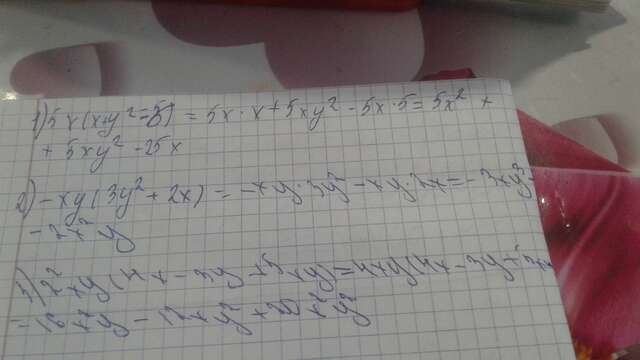 1) 5x(x+y²-5) = 5x·x+5xy² - 5x·5 = 5x² +
+ 5xy² - 25x
2) -xy(3y² + 2x) = -xy·3y² - xy·2x = -3xy³
- 2x²y
3) 2²xy(4x - 3y + 5xy) = 4xy(4x - 3y + 5xy
= 16x²y - 12xy² + 20x²y²